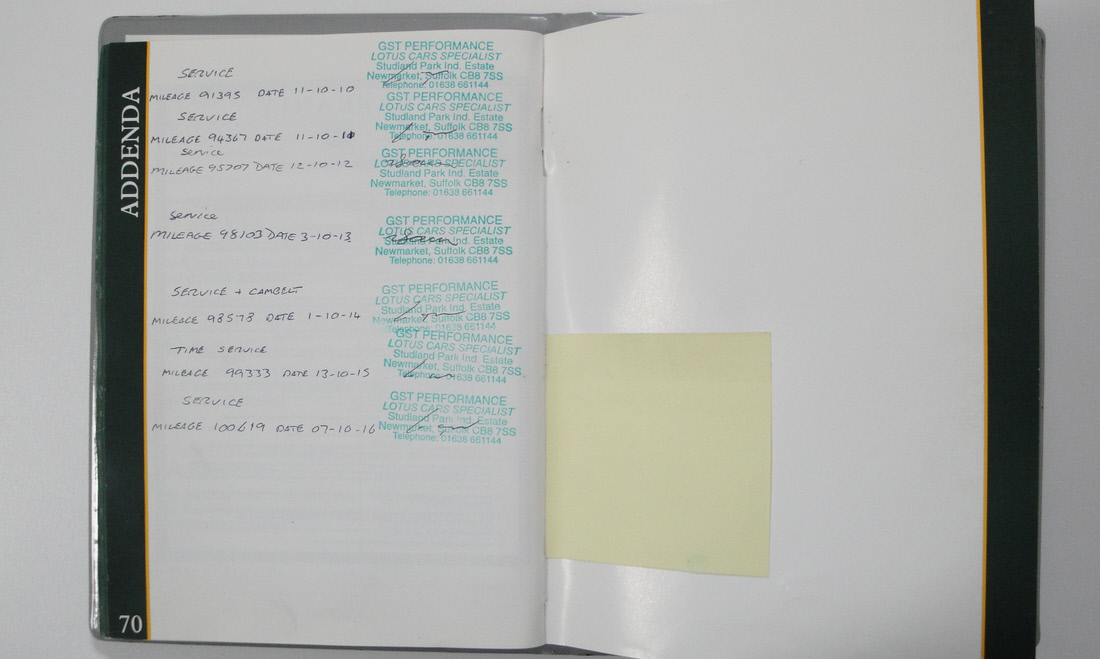 ADDENDA
SERVICE
MILEAGE 91395 DATE 11-10-10
GST PERFORMANCE
LOTUS CARS SPECIALIST
Studland Park Ind. Estate
Newmarket, Suffolk CB8 7SS
Telephone: 01638 661144
SERVICE
MILEAGE 94367 DATE 11-10-
GST PERFORMANCE
LOTUS CARS SPECIALIST
Studland Park Ind. Estate
Newmarket, Suffolk CB8 7SS
Telephone: 01638 661144
Service
MILEAGE 95707 DATE 12-10-12
GST PERFORMANCE
LOTUS CARS SPECIALIST
Studland Park Ind. Estate
Newmarket, Suffolk CB8 7SS
Telephone: 01638 661144
Service
MILEAGE 98103 DATE 3-10-13
GST PERFORMANCE
LOTUS CARS SPECIALIST
Studland Park Ind. Estate
Newmarket, Suffolk CB8 7SS
Telephone: 01638 661144
SERVICE + CAMBELT
MILEAGE 98573 DATE 1-10-14
GST PERFORMANCE
LOTUS CARS SPECIALIST
Studland Park Ind. Estate
Newmarket, Suffolk CB8 7SS
Telephone: 01638 661144
TIME SERVICE
MILEAGE 99333 DATE 13-10-15
GST PERFORMANCE
LOTUS CARS SPECIALIST
Studland Park Ind. Estate
Newmarket, Suffolk CB8 7SS
Telephone: 01638 661144
SERVICE
MILEAGE 100619 DATE 07-10-16
GST PERFORMANCE
LOTUS CARS SPECIALIST
Studland Park Ind. Estate
Newmarket, Suffolk CB8 7SS
Telephone: 01638 661144
70